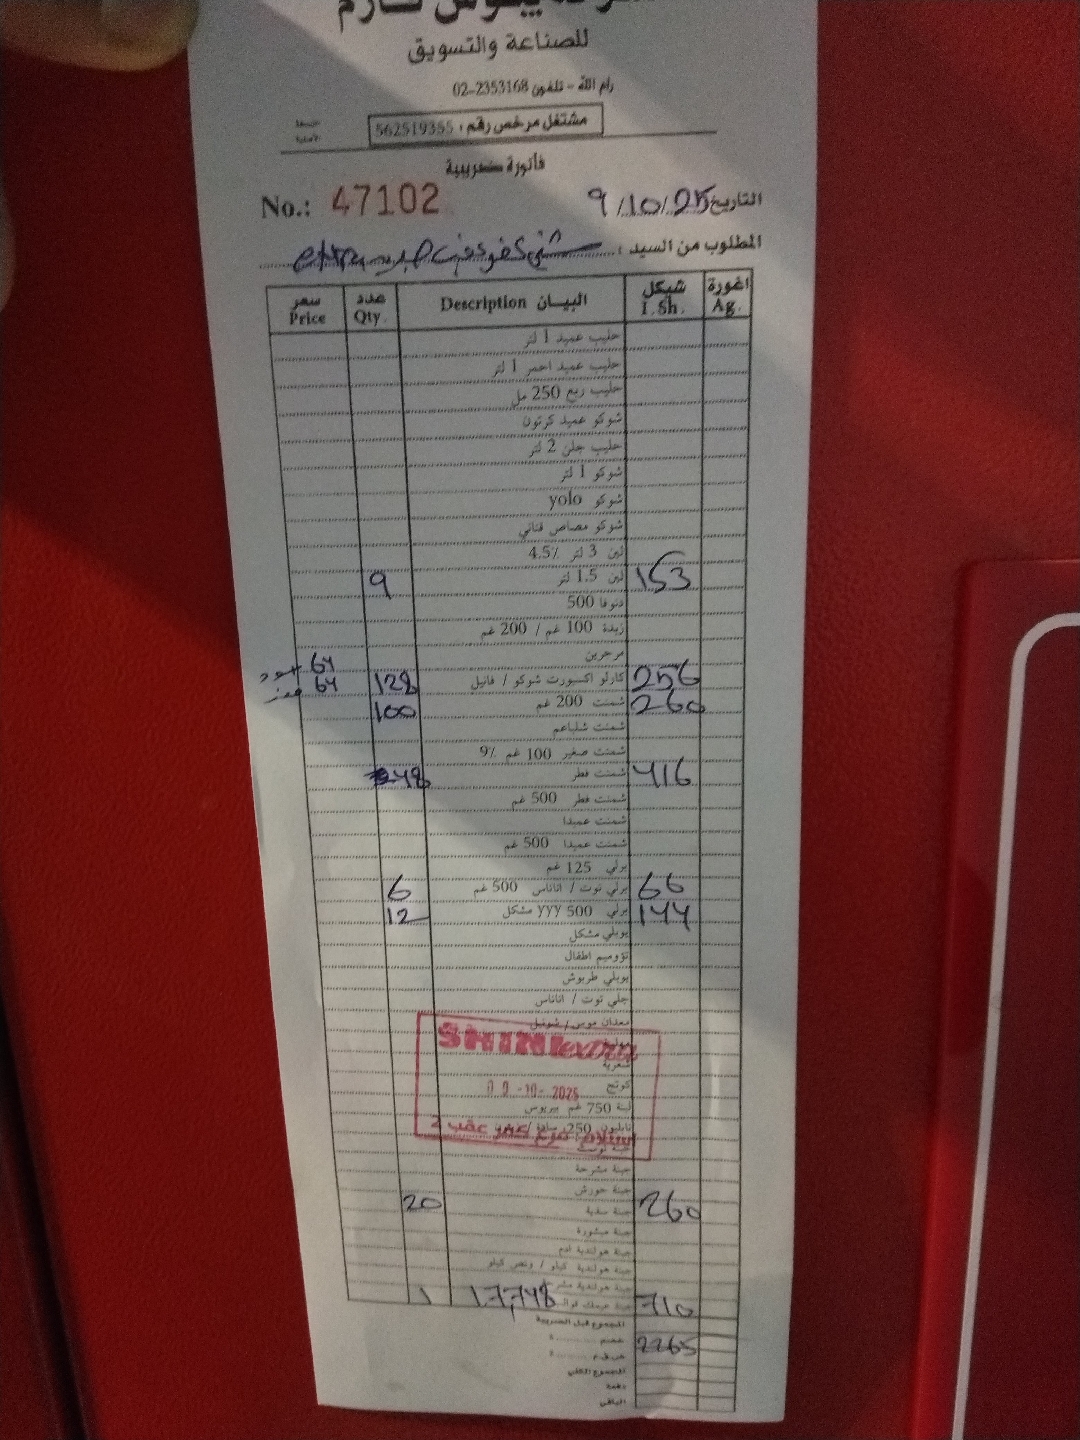 للصناعة والتسويق
رام الله - تلفون 02-2353168
مشتغل مرخص رقم : 562519355
فاتورة ضريبية
No.: 47102 التاريخ 9/10/25
المطلوب من السيد : extra
سعر عدد البيـــان Description شيكل اغورة
Price Qty. I.Sh. Ag.
حليب عميد 1 لتر
حليب عميد احمر 1 لتر
حليب ربع 250 مل
شوكو عميد كرتون
حليب جلن 2 لتر
شوكو 1 لتر
شوكو yolo
شوكو مصاص قناني
لبن 3 لتر 4.5%
9 لبن 1.5 لتر 153
دنوفا 500
زبدة 100 غم / 200 غم
مرجرين
64
64 128 كارلو اكسبورت شوكو / فانيل 256
100 شمنت 200 غم 260
شمنت شلباعم
شمنت صغير 100 غم 9%
48 شمنت فطر 416
شمنت فطر 500 غم
شمنت عميدا
شمنت عميدا 500 غم
برلي 125 غم
6 برلي توت / اناناس 500 غم 66
12 برلي 500 YYY مشكل 144
يوبلي مشكل
تؤوميم اطفال
يوبلي طربوش
جلي توت / اناناس
معدان موس / شوتيل
SHINI extra
شعرية
كوتج
09-10-2025
لبنة 750 غم بيريوس
نابليون 250
فرع كفر عقب 2
جبنة مشرحة
جبنة حورش
20 جبنة صفية 260
جبنة مبشورة
جبنة هولندية ادم
جبنة هولندية كيلو / ونص كيلو
جبنة هولندية
1 17,748 710
المجموع قبل الضريبة
خصم 2265
المجموع الكلي
دفعة
الباقي